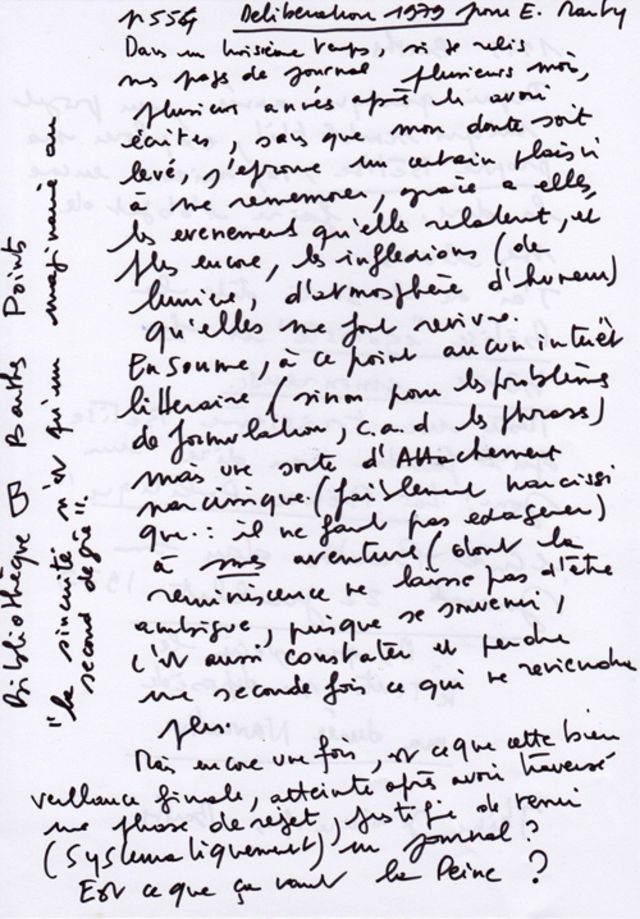 p 554 Deliberation 1979 pour E. Marty
Dans un troisième temps, si je relis
mes pages de journal plusieurs mois,
plusieurs années après les avoir
écrites, sans que mon doute soit
levé, j'éprouve un certain plaisir
à me remémorer, grâce a elles,
les evenement qu'elles relatent, et
plus encore, les inflexions (de
lumière, d'atmosphère d'humeur)
qu'elles me font revivre.
En somme, à ce point aucun intérêt
litteraire (sinon pour les problèmes
de formulation, c.a.d les phrases)
mais une sorte d'Attachement
narcissique (faiblement narcissi
que : il ne faut pas exagerer)
à mes aventures (dont la
reminiscence ne laisse pas d'être
ambigue, puisque se souvenir,
c'est aussi constater et perdre
une seconde fois ce qui ne reviendra
plus.
Mais encore une fois, est ce que cette bien
veillance finale, atteinte après avoir traversé
une phase de rejet, justifie de tenir
(systematiquement) un journal ?
Est ce que ça vaut la Peine ?
Bibliothèque B Barthes Points
"la sincérité n'est qu'un imaginaire au
second degré".